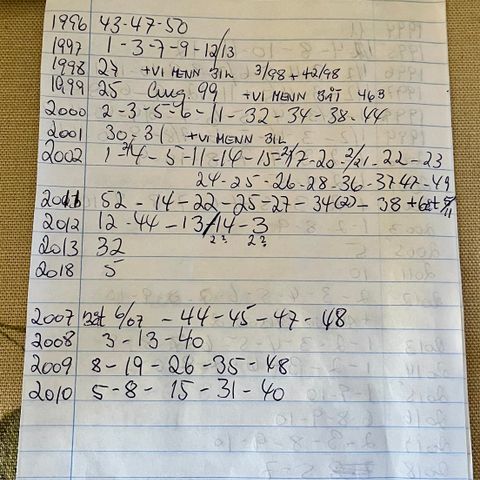 1996 43-47-50
1997 1-3-7-9-12/13
1998 27 +VI MENN BIL 3/98 + 42/98
1999 25 Aug 99 +VI MENN BÅT 463
2000 2-3-5-6-11-32-34-38-44
2001 30-31 +VI MENN BIL
2002 1-3/4-5-11-14-15-2/17-20-2/21-22-23
24-25-26-28-36-37 47-49
2011 52-14-22-25-27-34(2)-38
2012 12-44-13/14-3
2? 2?
2013 32
2018 5
2007 båt 6/07 -44-45-47-48
2008 3-13-40
2009 8-19-26-35-48
2010 5-8-15-31-40